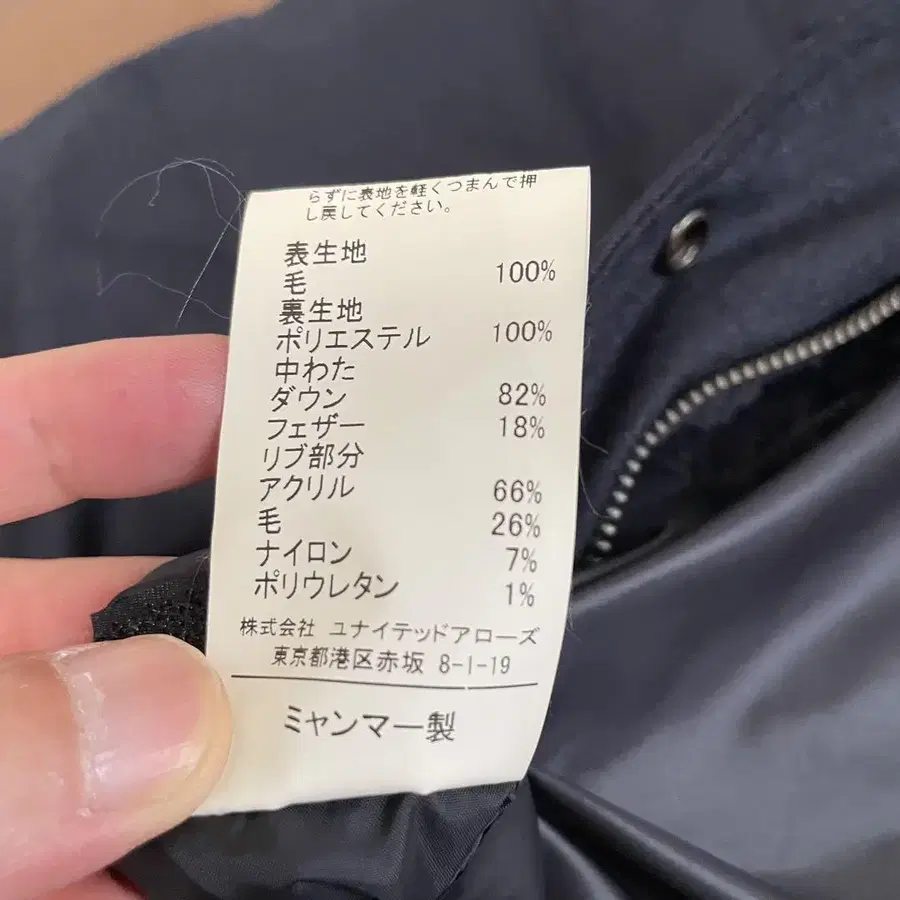 らずに表地を軽くつまんで押
し戻してください。
表生地
毛 100%
裏生地
ポリエステル 100%
中わた
ダウン 82%
フェザー 18%
リブ部分
アクリル 66%
毛 26%
ナイロン 7%
ポリウレタン 1%
株式会社 ユナイテッドアローズ
東京都港区赤坂 8-1-19
ミャンマー製